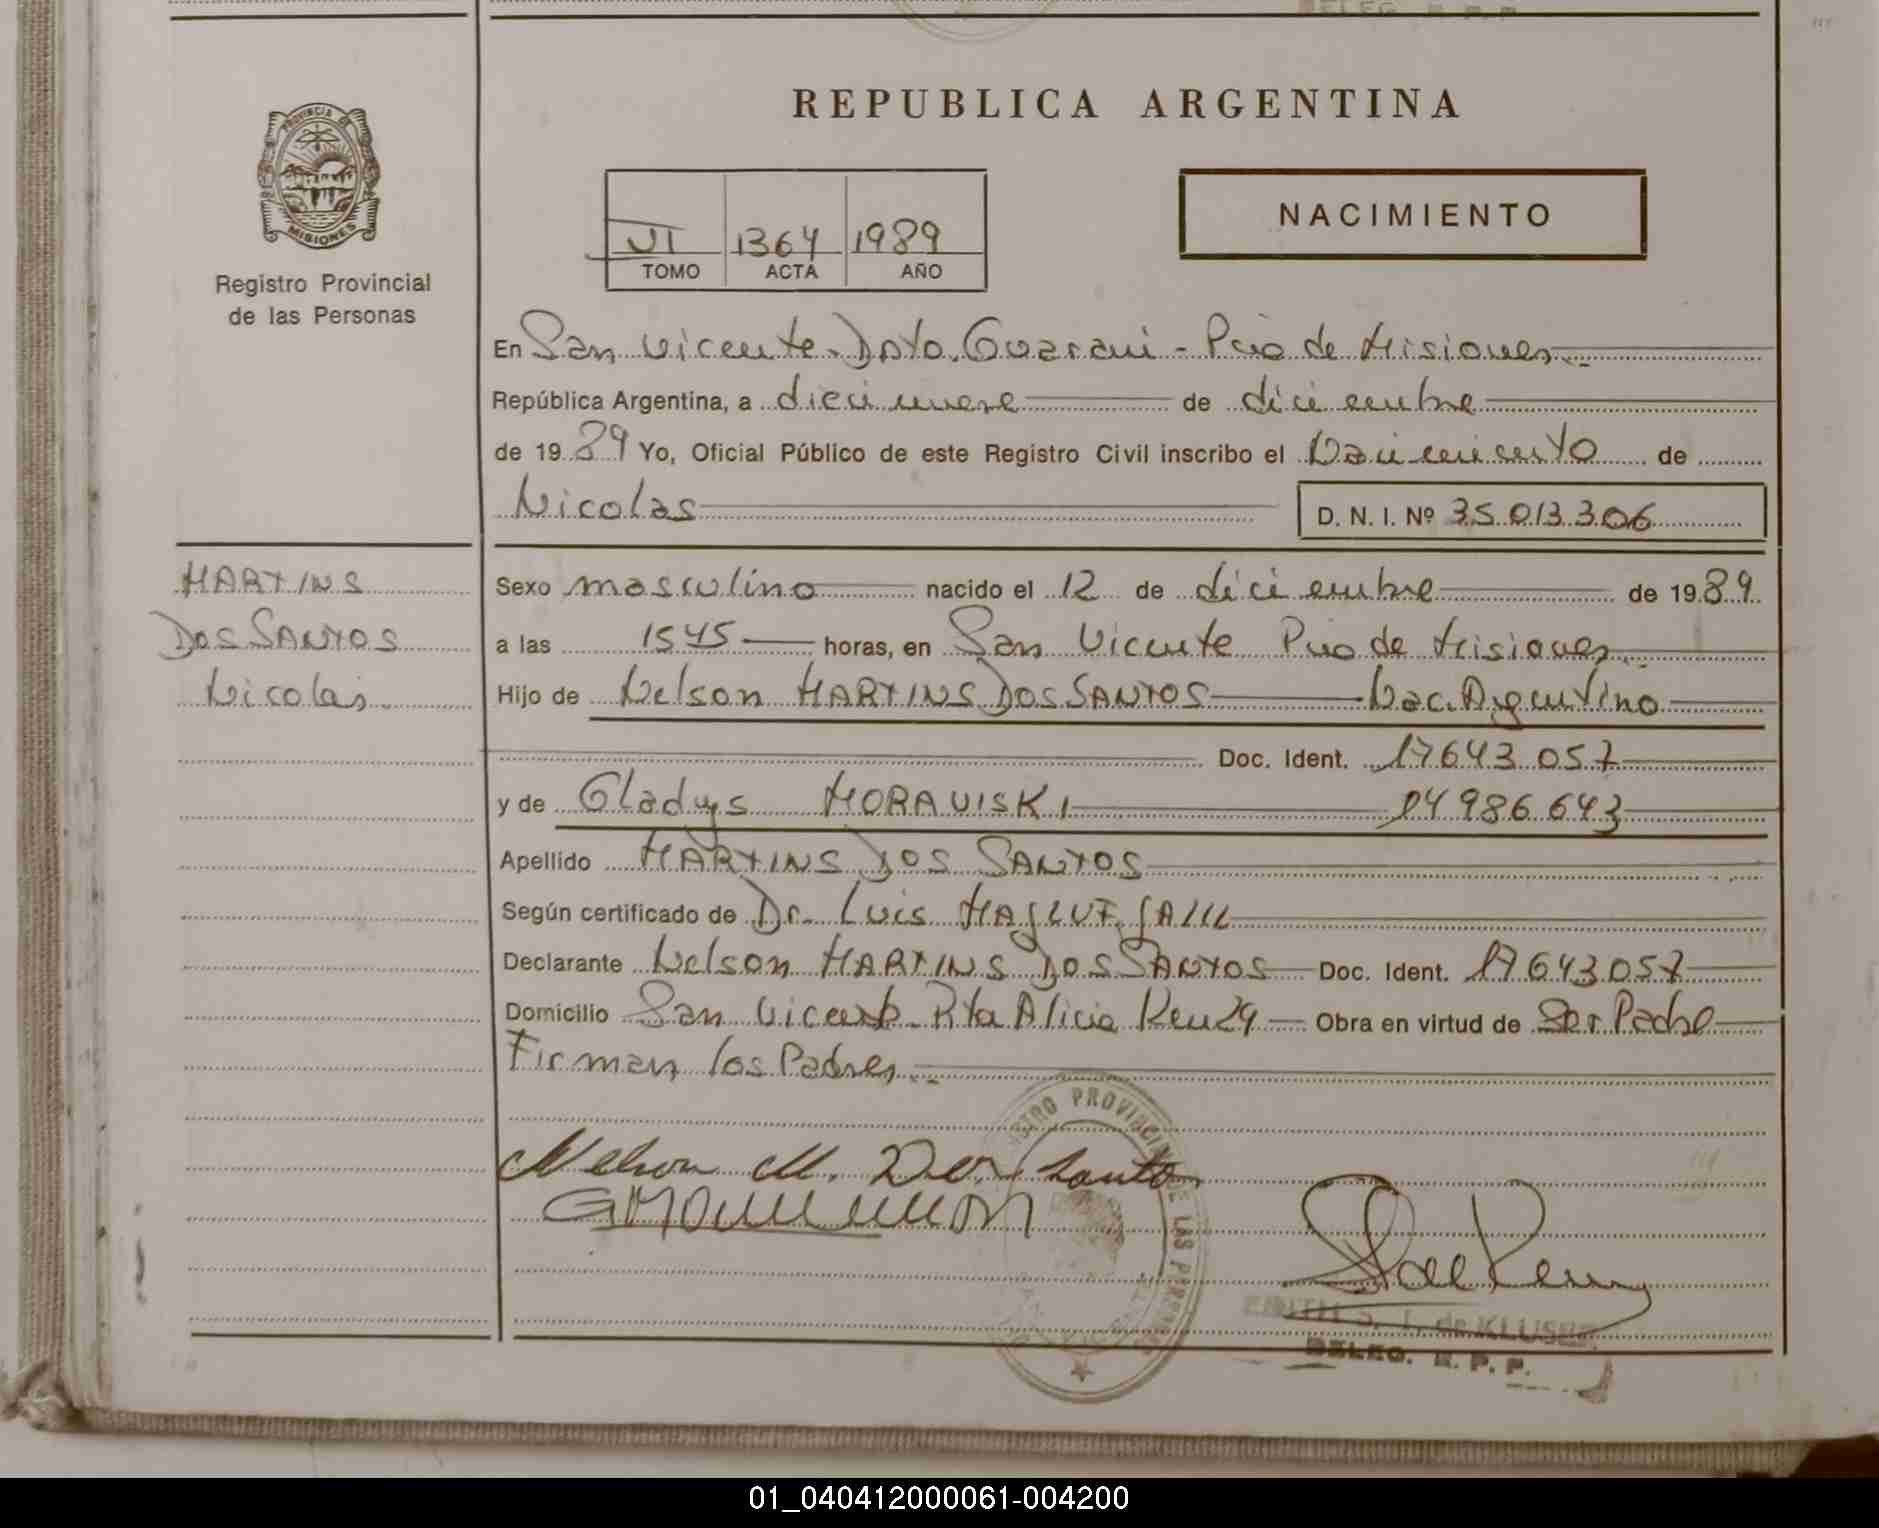 REPUBLICA ARGENTINA
PROVINCIA DE
MISIONES
Registro Provincial
de las Personas
VI 1364 1989
TOMO ACTA AÑO
NACIMIENTO
En San Vicente. Dpto. Guarani - Pcia de Misiones.
República Argentina, a diecinueve de diciembre
de 1989 Yo, Oficial Público de este Registro Civil inscribo el Nacimiento de
Nicolas D. N. I. Nº 35.013.306
MARTINS
DOS SANTOS
Nicolas.
Sexo masculino nacido el 12 de diciembre de 1989.
a las 1545 horas, en San Vicente Pcia de Misiones.
Hijo de Nelson MARTINS DOS SANTOS Nac. Argentino
Doc. Ident. 17643.057
y de Gladys MORAVISKI 14986.643
Apellido MARTINS DOS SANTOS
Según certificado de Dr. Luis
Declarante Nelson MARTINS DOS SANTOS Doc. Ident. 17.643.057
Domicilio San Vicente Alicia Obra en virtud de Ser Padre
Firman los Padres.
Nelson M. Dos Santos
PROVINCIAL DE LAS PERSONAS
EDITH S. T. de KLUSE
DELEG. R. P. P.
01_040412000061-004200